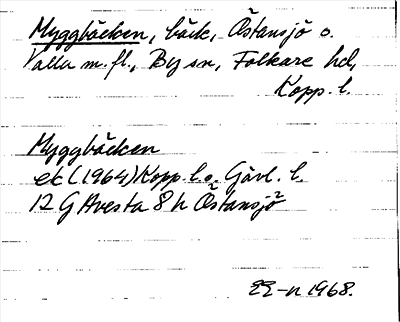 Myggbäcken, bäck, Östansjö o.
Valla m.fl., By sn, Folkare hd,
Kopp. l.
Myggbäcken
ek (1964) Kopp. l. o. Gävl. l.
12 G Avesta 8 h Östansjö
1968.